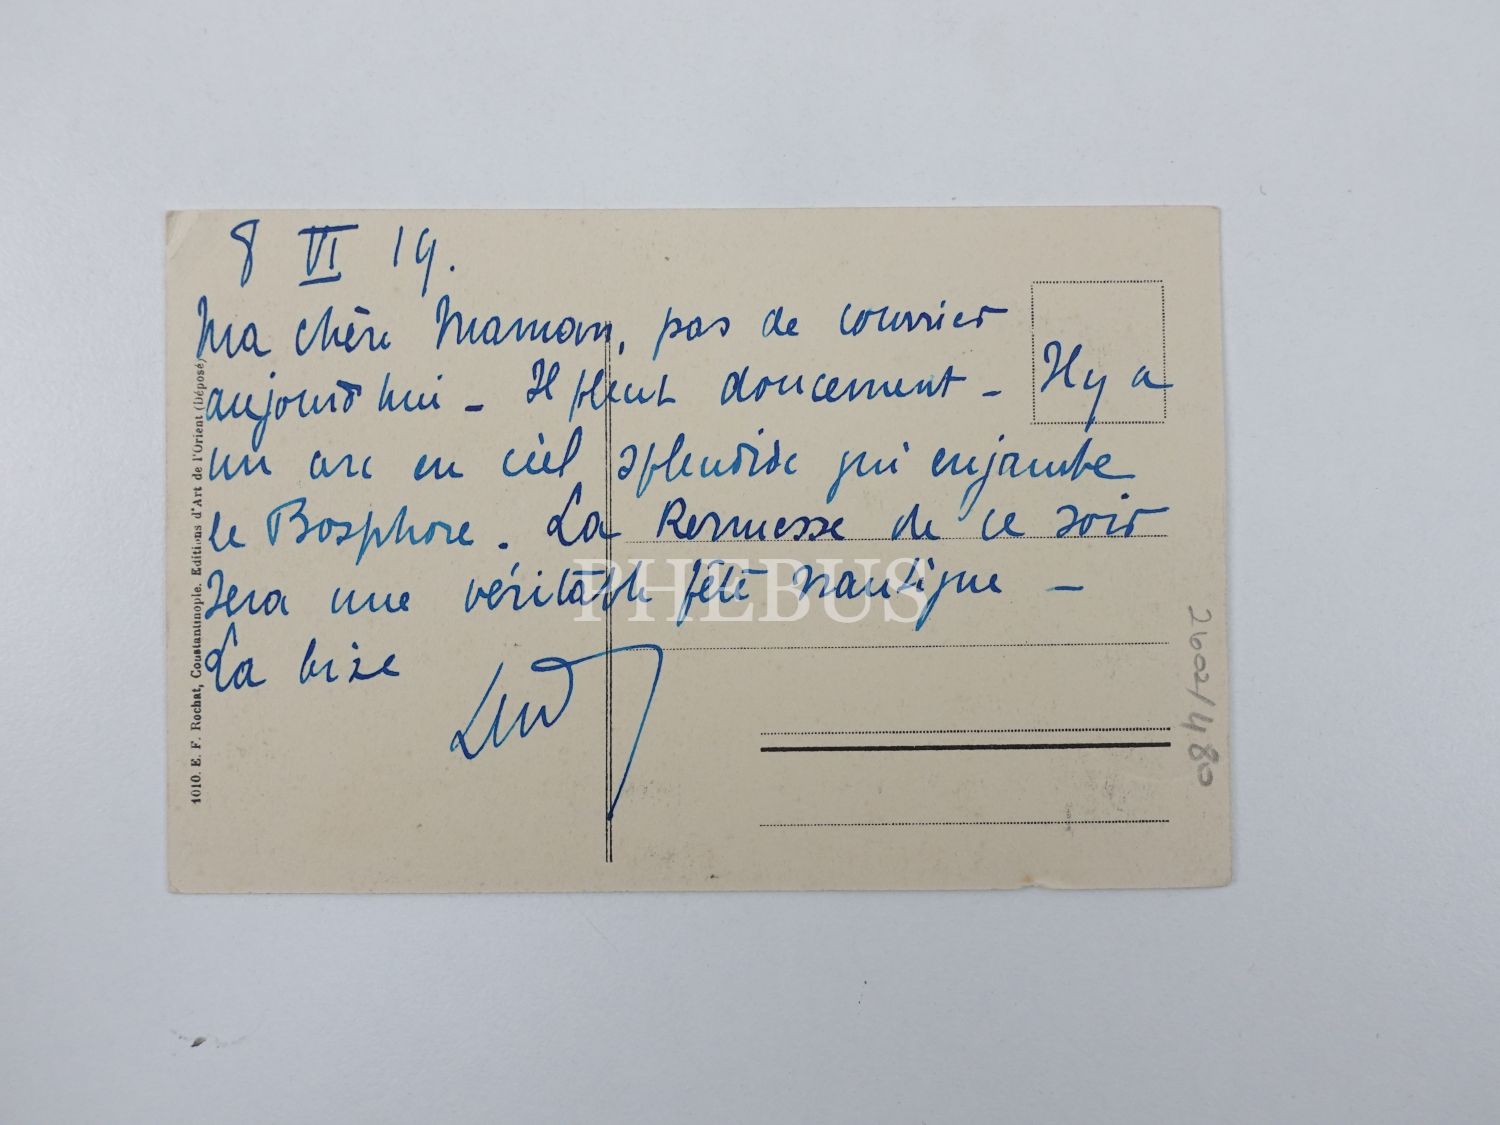 8 VI 19.
Ma chère Maman, pas de courrier
aujourd'hui - Il pleut doucement - Il y a
un arc en ciel splendide qui enjambe
le Bosphore. La Kermesse de ce soir
sera une véritable fête nautique -
La bise
1010. E. F. Rochat, Constantinople. Editions d'Art de l'Orient (Déposé)
2602/480
PHEBUS